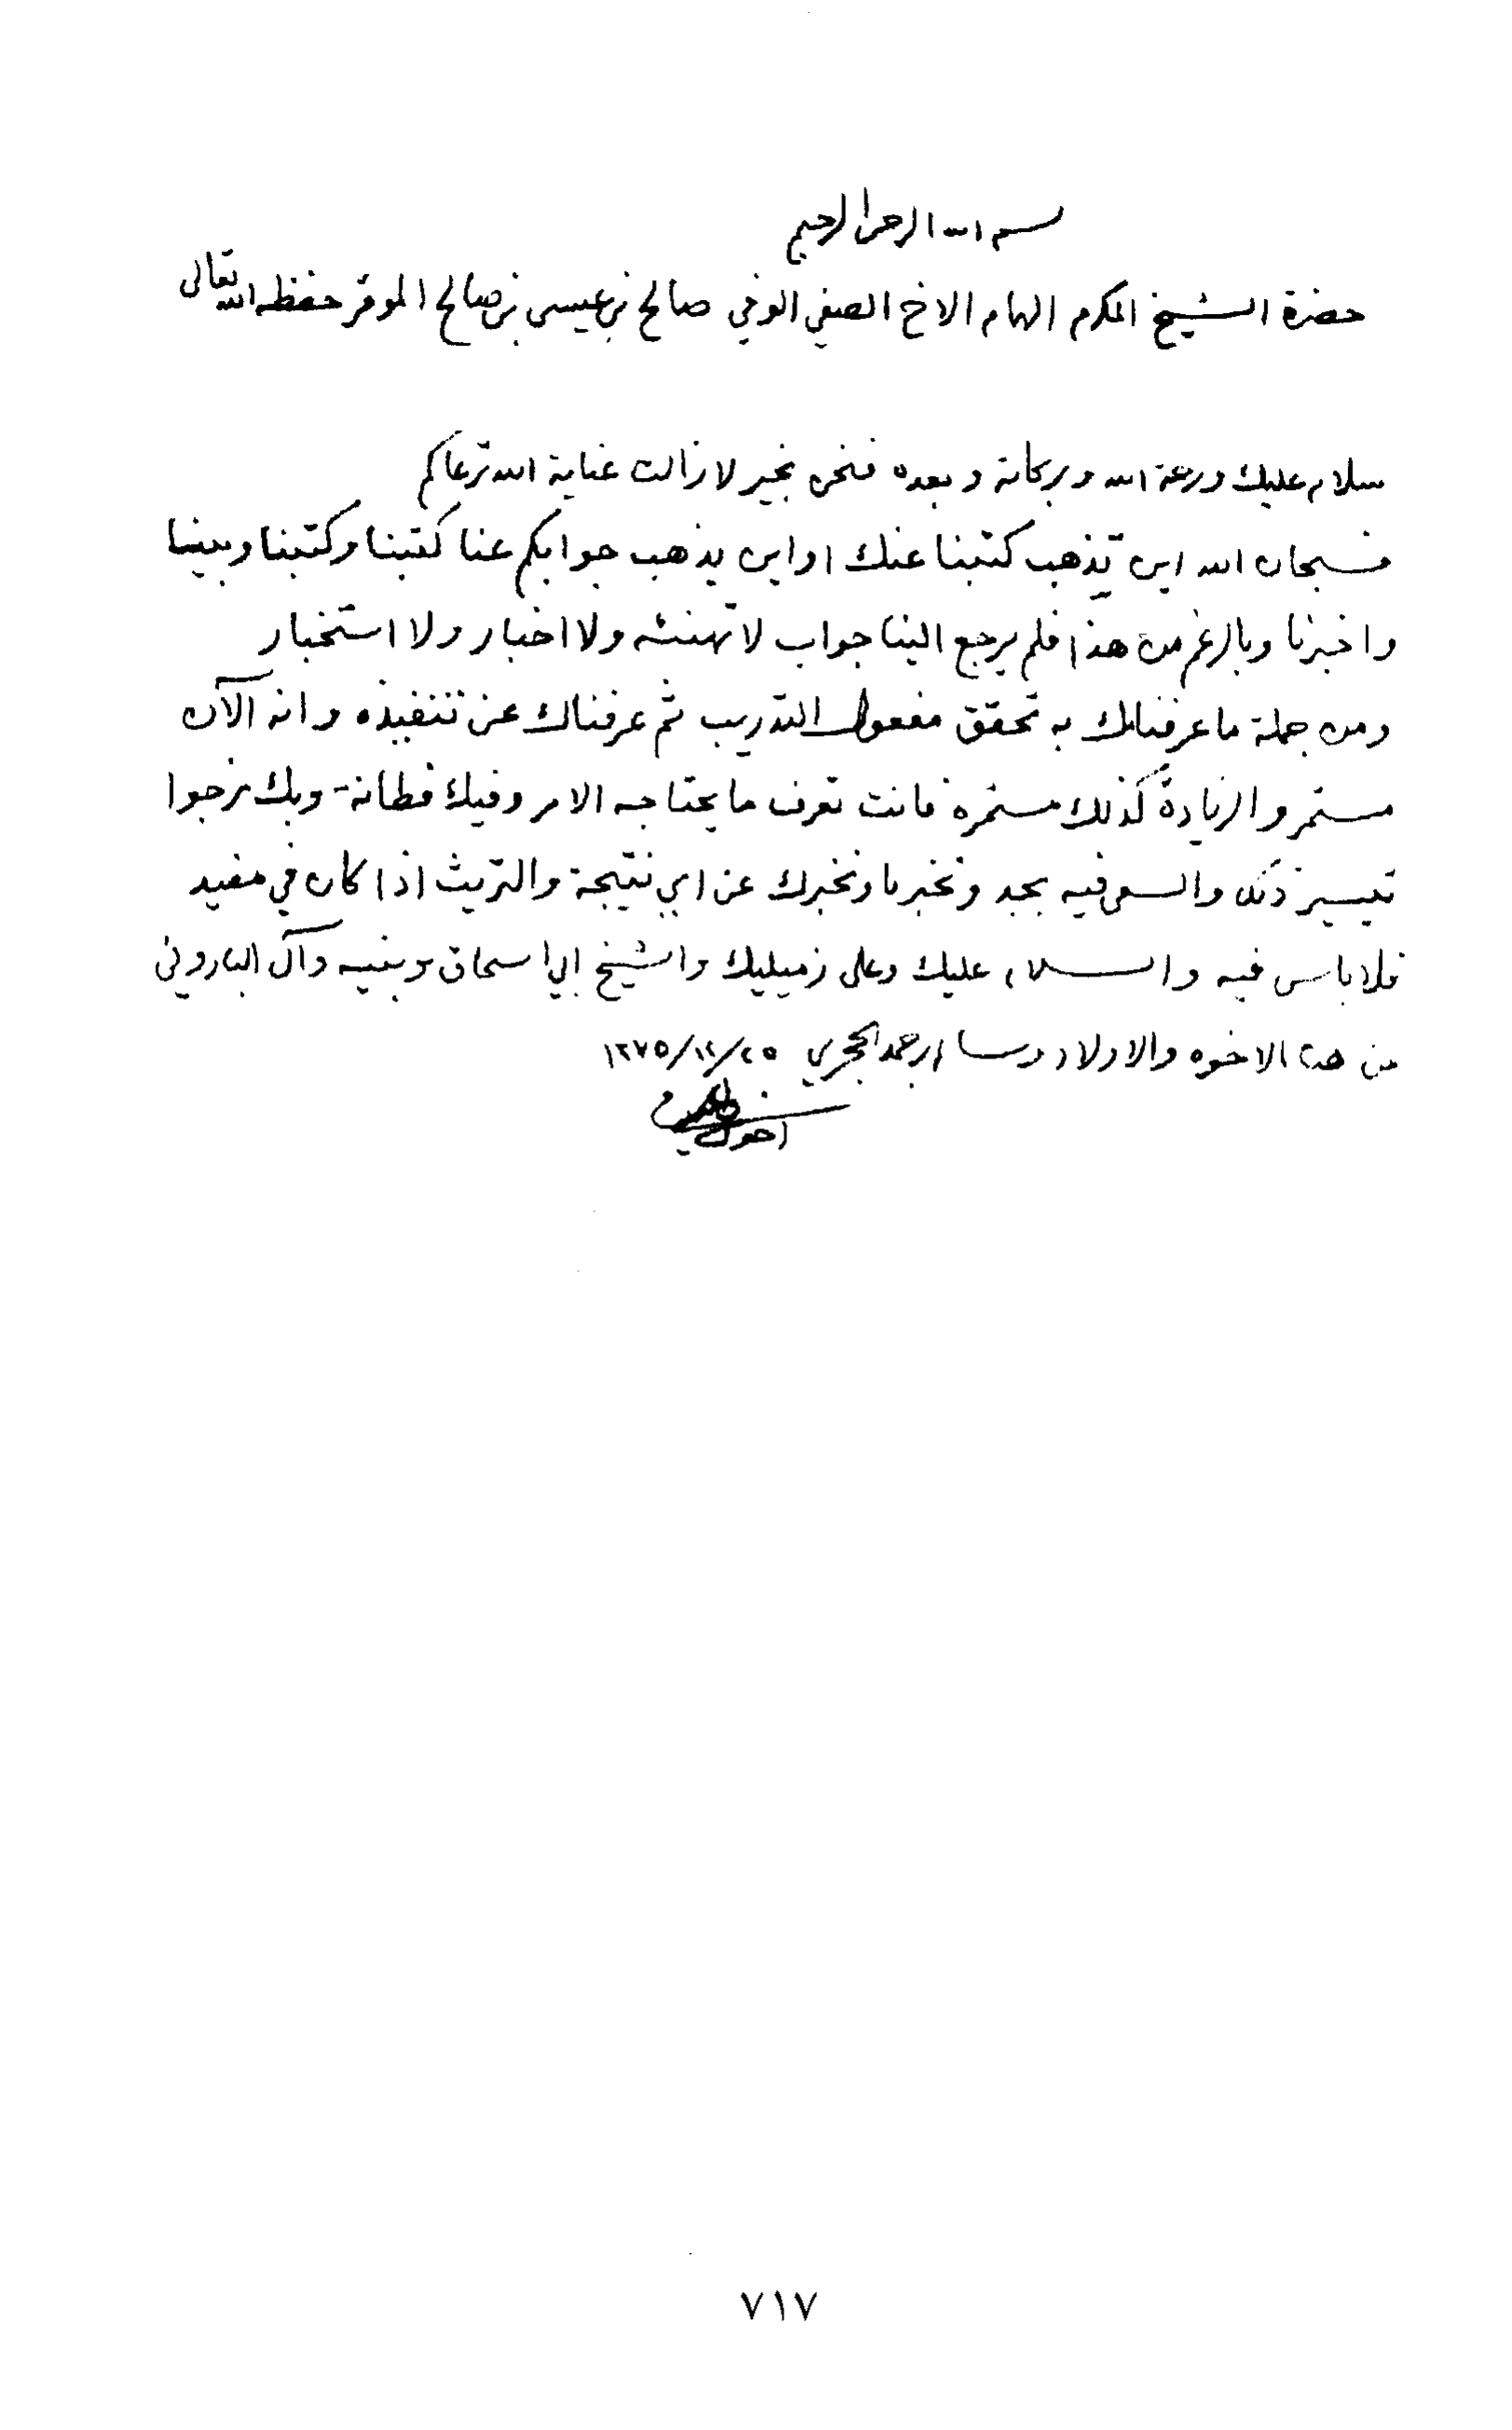 بسم الله الرحمن الرحيم
حضرة الشيخ المكرم الهمام الاخ الصفي الوفي صالح بن عيسى بن صالح الموقر حفظه الله تعالى
سلام عليك ورحمة الله وبركاته وبعده فنحن بخير لازالت عناية الله ترعاكم
فسبحان الله اين تذهب كتبنا عنك او اين يذهب جوابكم عنا كتبنا وكتبنا وبينا
واخبرنا وبالرغم من هذا فلم يرجع الينا جواب لا تهنئه ولا اخبار ولا استخبار
ومن جملة ما عرفناك به تحقق مفعول التدريب ثم عرفناك عن تنفيذه وانه الآن
مستمر والزيادة كذلك مستمره فانت تعرف ما يحتاجه الامر وفيك فطانة وبك نرجوا
تيسير ذلك والسعي فيه بجد وتخبرنا ونخبرك عن اي نتيجة والتريث اذا كان في مفيد
فلا باس فيه والسلام عليك وعلى زميليك والشيخ ابي اسحاق وبنيه وآل الباروني
من هنا الاخوه والاولاد وسالم بن حمد الحجري ١٣٧٥/١٢/٢٥
اخوك
٧١٧